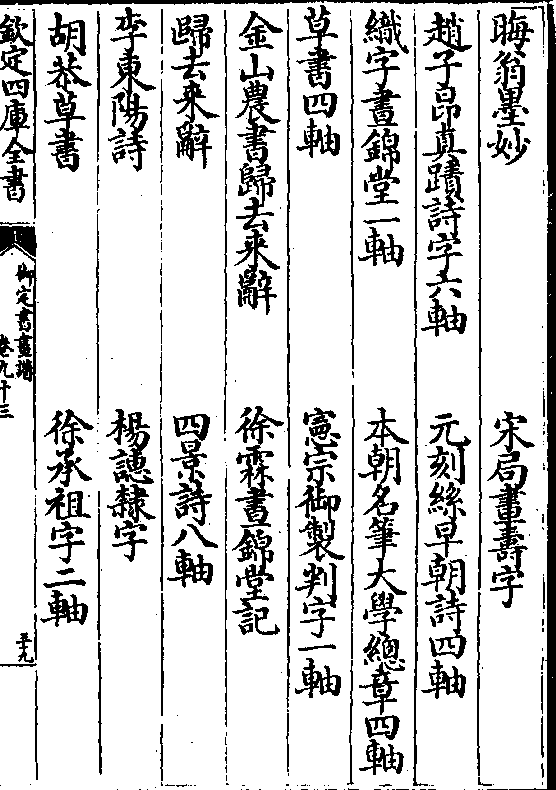 晦翁墨妙　宋局畫壽字
趙子昂真蹟詩字六軸　元刻絲早朝詩四軸
織字晝錦堂一軸　本朝名筆大學總章四軸
草書四軸　憲宗御製判字一軸
金山農書歸去來辭　徐霖晝錦堂記
歸去來辭　四景詩八軸
李東陽詩　楊譓隸字
胡恭草書　徐承祖字二軸
欽定四庫全書
御定書畫譜
卷九十三
五十九